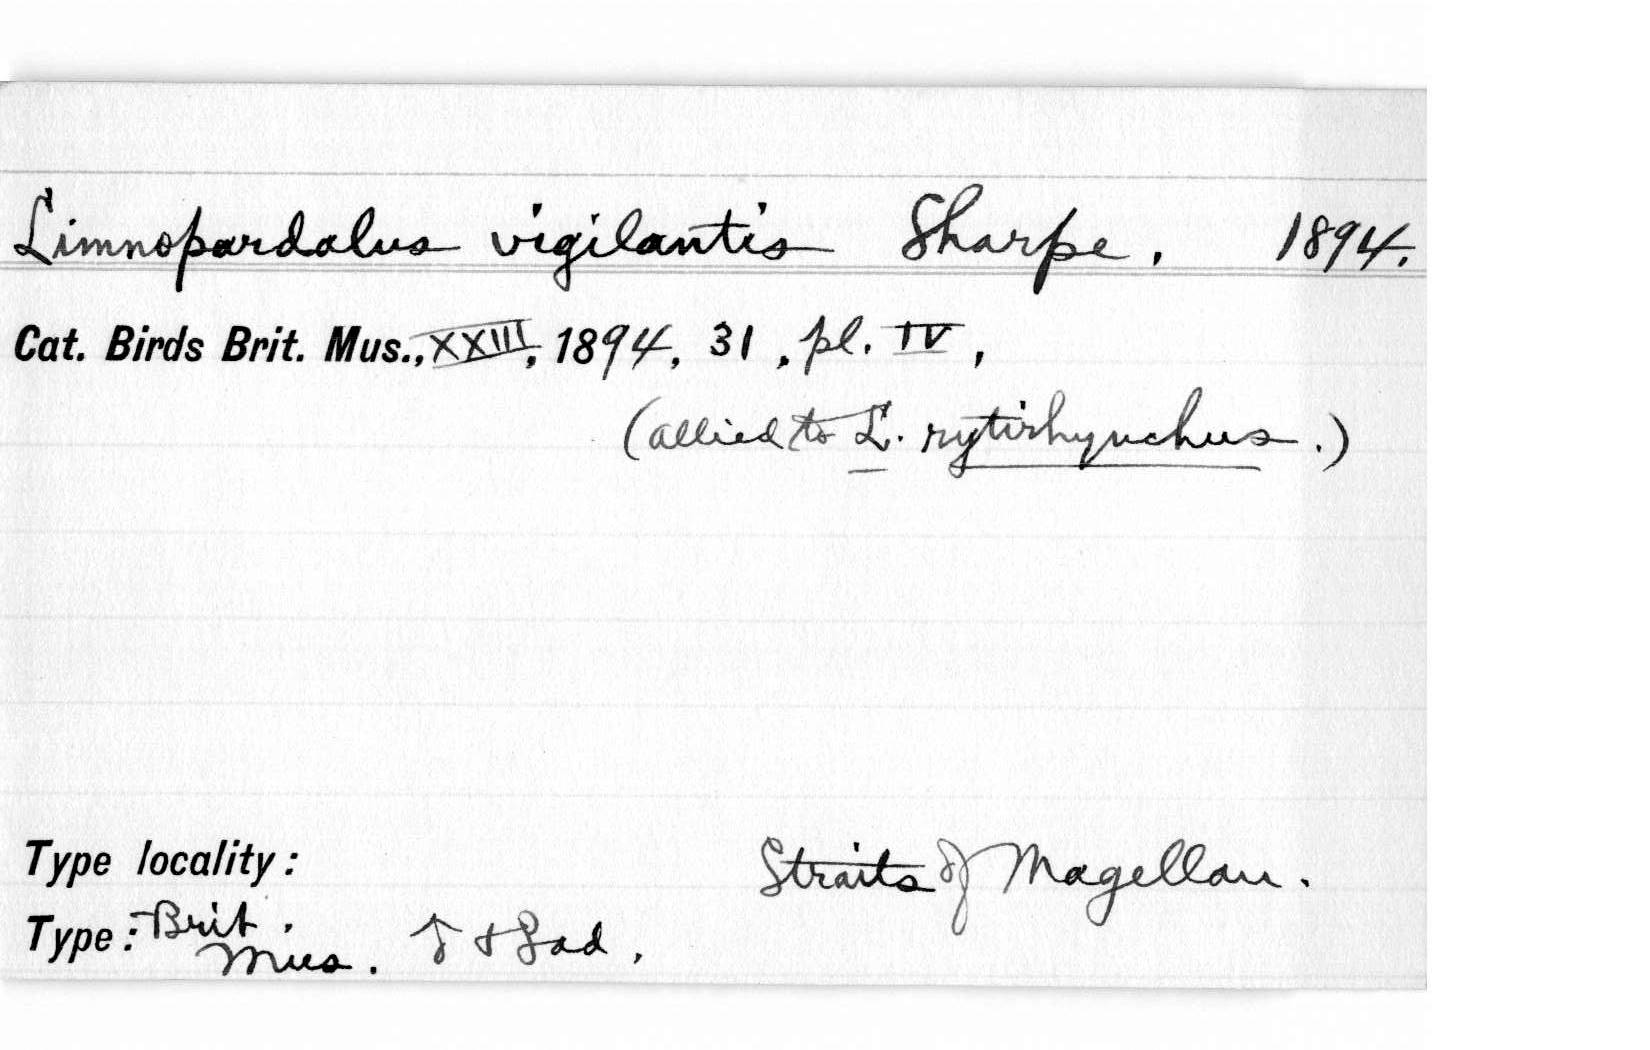 Limnopardalus vigilantis Sharpe. 1894.
Cat. Birds Brit. Mus., XXIII, 1894, 31, pl. IV,
(allied to L. rytirhynchus.)
Type locality: Straits of Magellan.
Type: Brit. Mus. ♂ + ♀ ad.